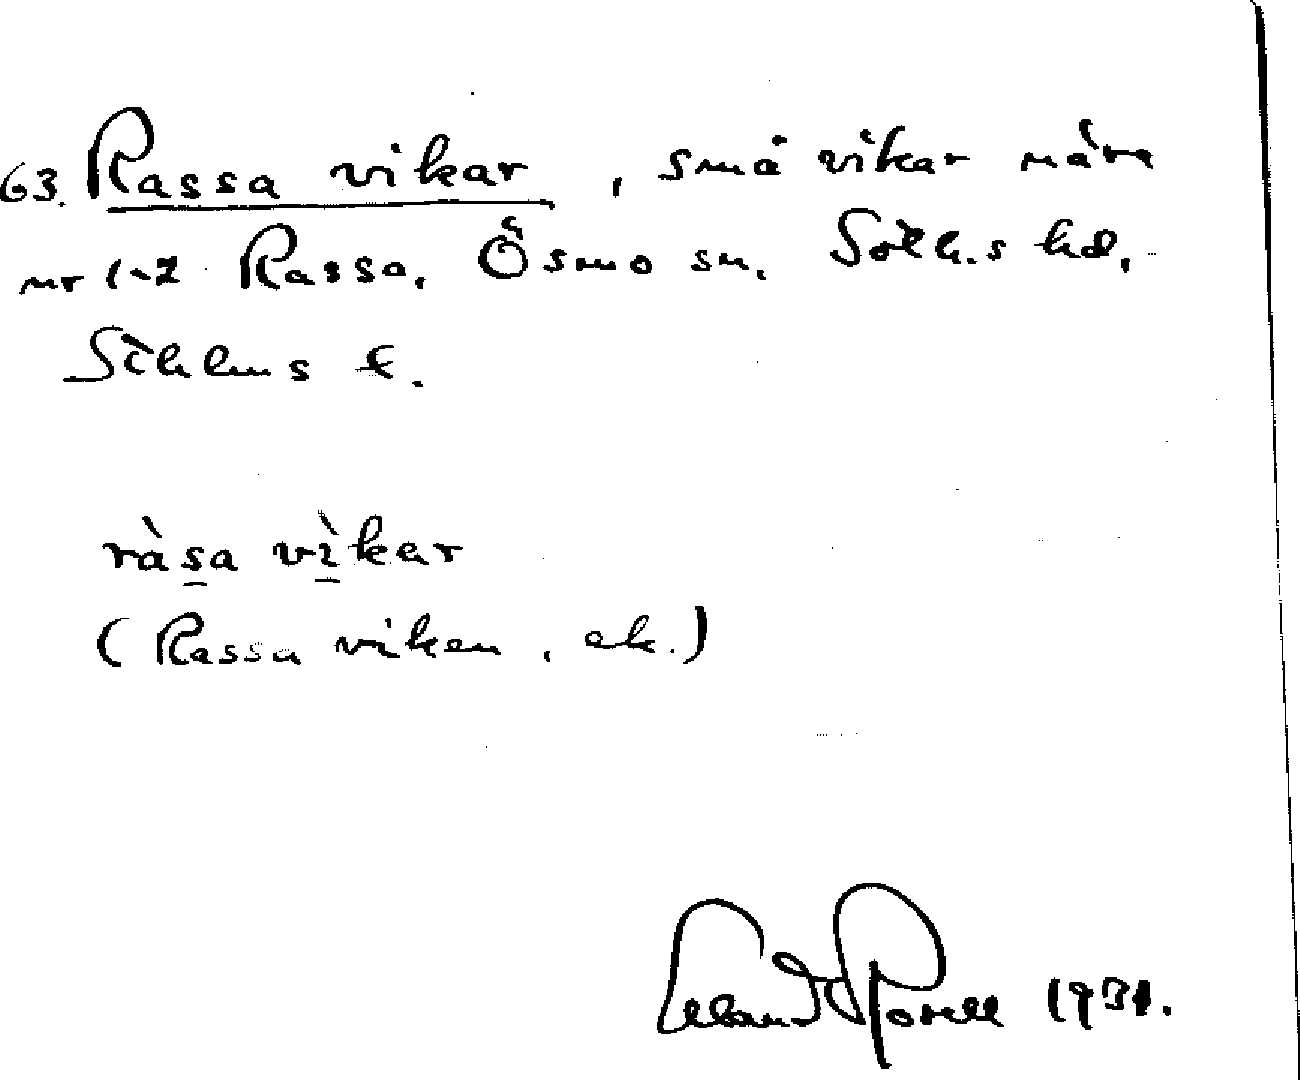 63. Rassa vikar, små vikar nära
nr 1-2 Rassa, Ösmo sn, Soth.s hd,
Sthlms l.
ràsa vìkar
(Rassa viken, ek.)
1931.